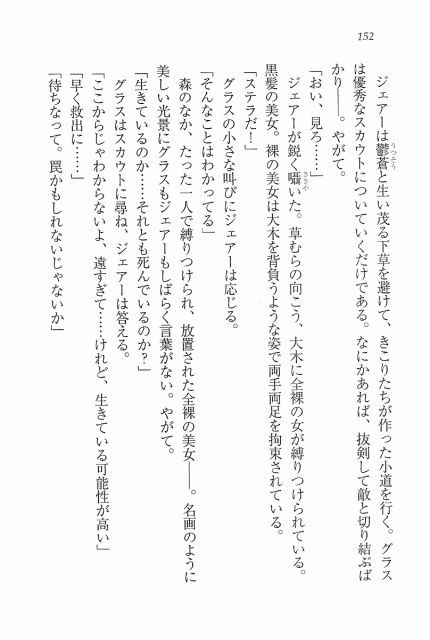 152
ジェアーは鬱蒼と生い茂る下草を避けて、きこりたちが作った小道を行く。グラス
は優秀なスカウトについていくだけである。なにかあれば、抜剣して敵と切り結ぶば
かり――。やがて。
「おい、見ろ……」
ジェアーが鋭く囁いた。草むらの向こう、大木に全裸の女が縛りつけられている。
黒髪の美女。裸の美女は大木を背負うような姿で両手両足を拘束されている。
「ステラだ！」
グラスの小さな叫びにジェアーは応じる。
「そんなことはわかってる」
森のなか、たった一人で縛りつけられ、放置された全裸の美女――。名画のように
美しい光景にグラスもジェアーもしばらく言葉がない。やがて。
「生きているのか……それとも死んでいるのか？」
グラスはスカウトに尋ね、ジェアーは答える。
「ここからじゃわからないよ、遠すぎて……けれど、生きている可能性が高い」
「早く救出に……」
「待ちなって。罠かもしれないじゃないか」